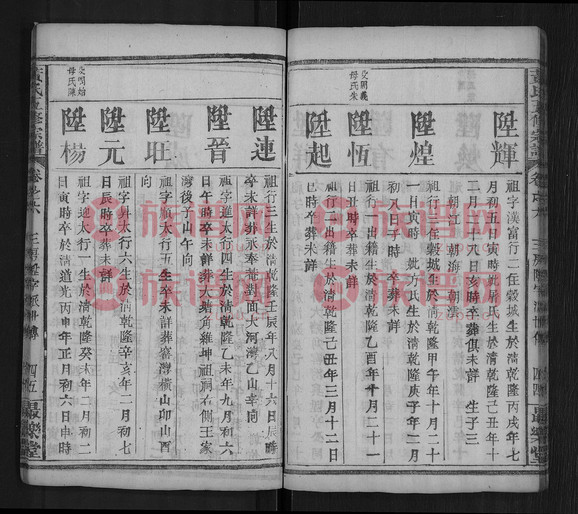 陞輝
祖字漢富行二住穀城生於清乾隆丙戌年七
月初五日寅時
二月十八日亥時卒葬俱未詳 生子三
朝江 朝海 朝清
陞煌
祖行四住穀城生於清乾隆甲午年十月二十
一日寅時 娶方氏生於清乾隆庚子年二月
初八日子時 卒葬未詳
父開義
母氏朱
陞恆
祖行一出籍生於清乾隆乙酉年十月二十一
日丑時卒葬未詳
陞起
祖行二出籍生於清乾隆己丑年三月十二日
巳時卒葬未詳
陞連
祖行三生於清乾隆壬辰年八月十六日辰時
卒未詳葬永奉菴對面大河灣乙山辛向
陞晉
祖字進太行四生於清乾隆乙未年九月十六
日午時卒未詳葬大塘角雞坤祖祠右側王家
灣後子山午向
陞旺
祖字順太行五生卒未詳葬窰灣橫山卯山酉
向
陞元
祖字昇太行六生於清乾隆辛亥年二月初七
日寅時卒葬未詳
父開始
母氏陳
陞楊
祖字迎太行一生於清乾隆癸未年二月初二
日寅時卒於清道光丙申年正月初六日申時
黃氏宗譜
最樂堂
族譜网